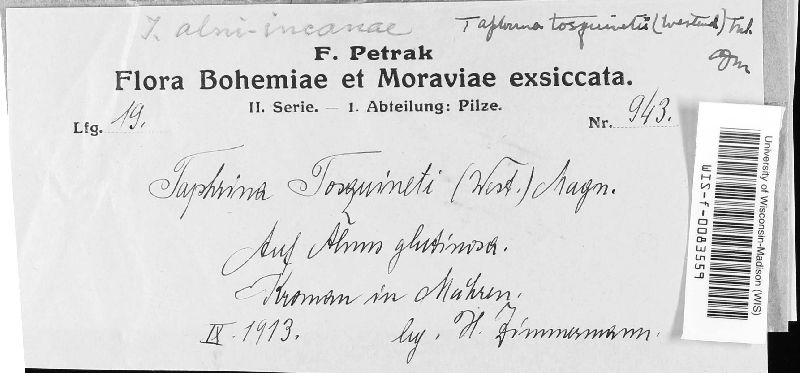 T. alni-incanae
Taphrina tosquinetii (Westend.) Tul.
F. Petrak
Flora Bohemiae et Moraviae exsiccata.
II. Serie. — 1. Abteilung: Pilze.
Lfg. 19.
Nr. 943.
Taphrina Tosquineti (West.) Magn.
Auf Alnus glutinosa.
Kroman in Mähren.
IX. 1913.
leg. H. Zimmermann.
University of Wisconsin-Madison (WIS)
WIS-f-0083559